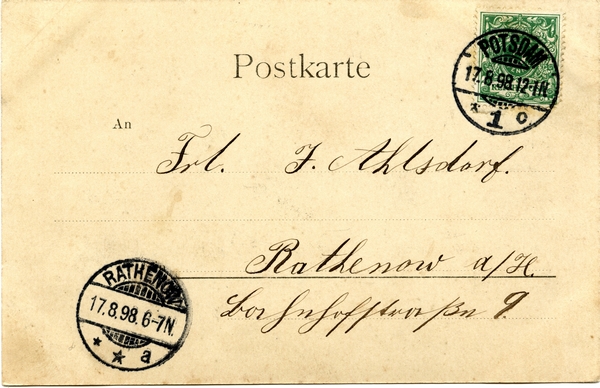 Postkarte
POTSDAM
17.8.98.12-1N.
* 1 c
An
Frl. J. Ahlsdorf.
Rathenow a/H.
Bahnhofstraße 9
RATHENOW
17.8.98.6-7N.
* * a